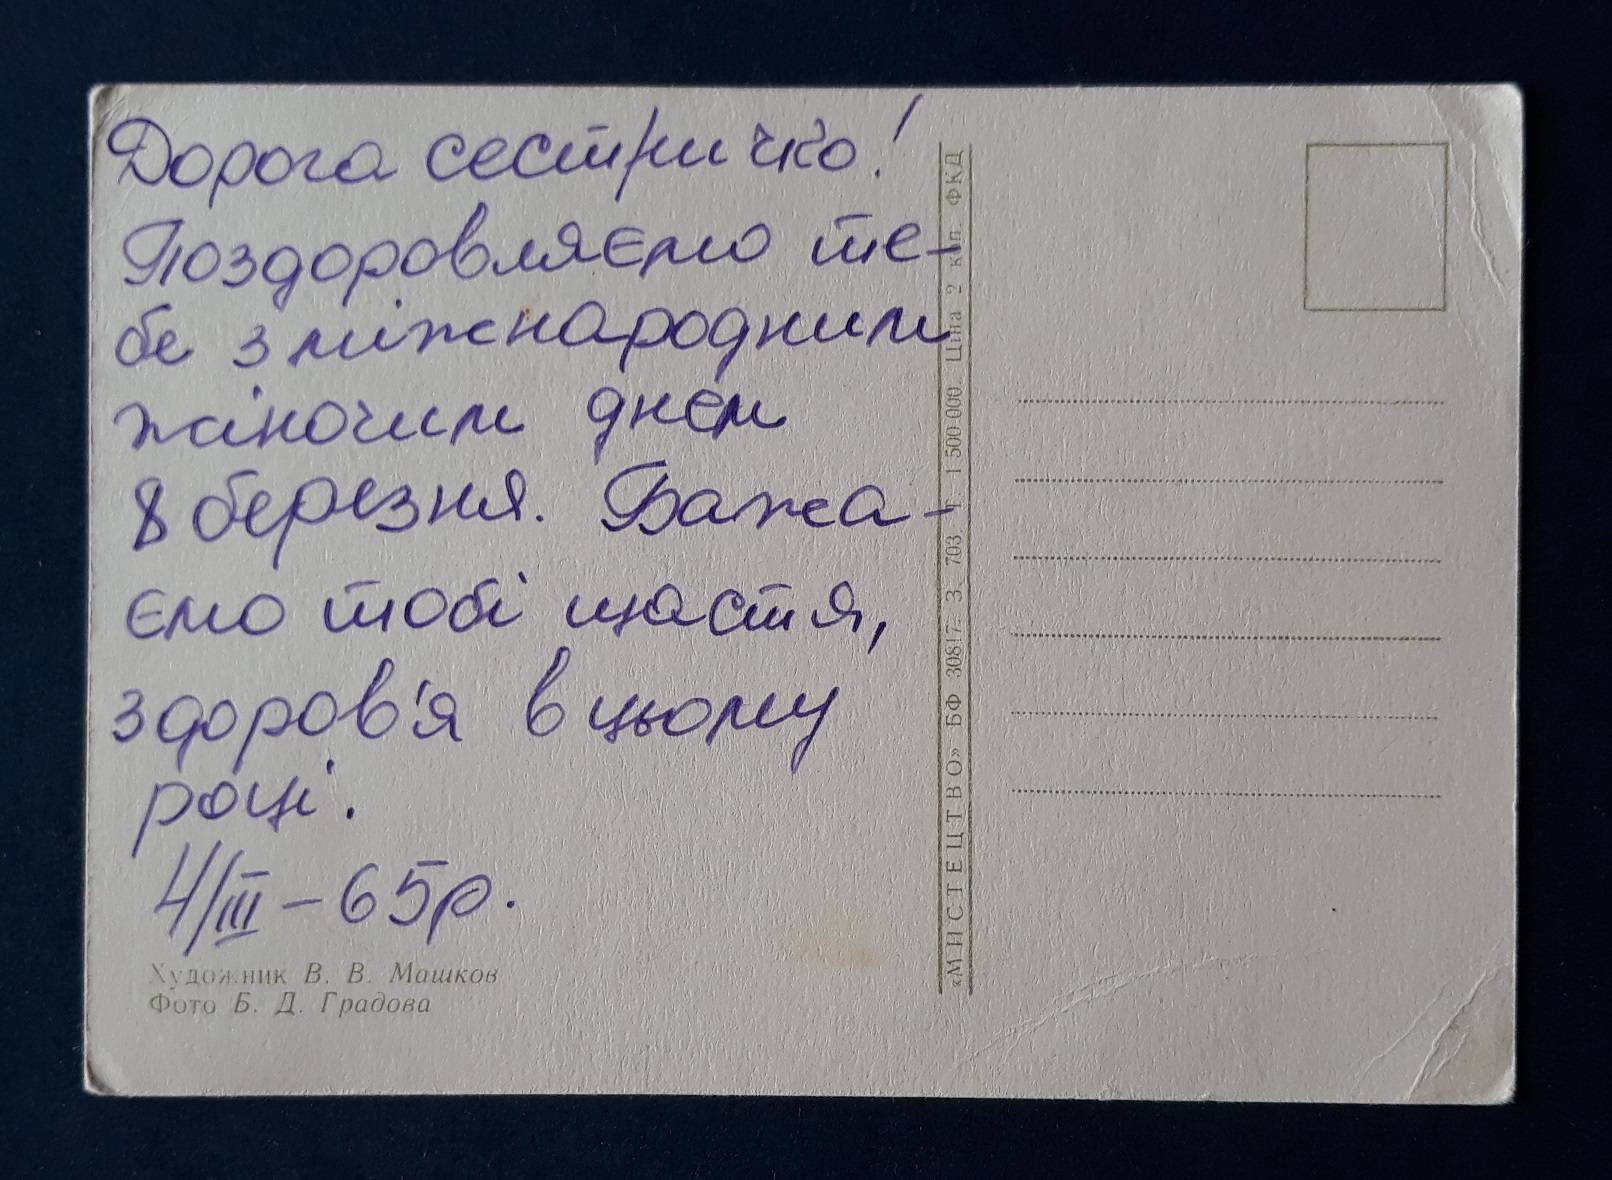 Дорога сестричко!
Поздоровляємо те-
бе з міжнародним
жіночим днєм
8 березня. Бажа-
ємо тобі щастя,
здоров'я в цьому
році.
4/III – 65р.
Художник В. В. Машков
Фото Б. Д. Градова
«МИСТЕЦТВО» БФ 30817. З. 703. Т. 1 500 000. Ціна 2 коп. ФКД